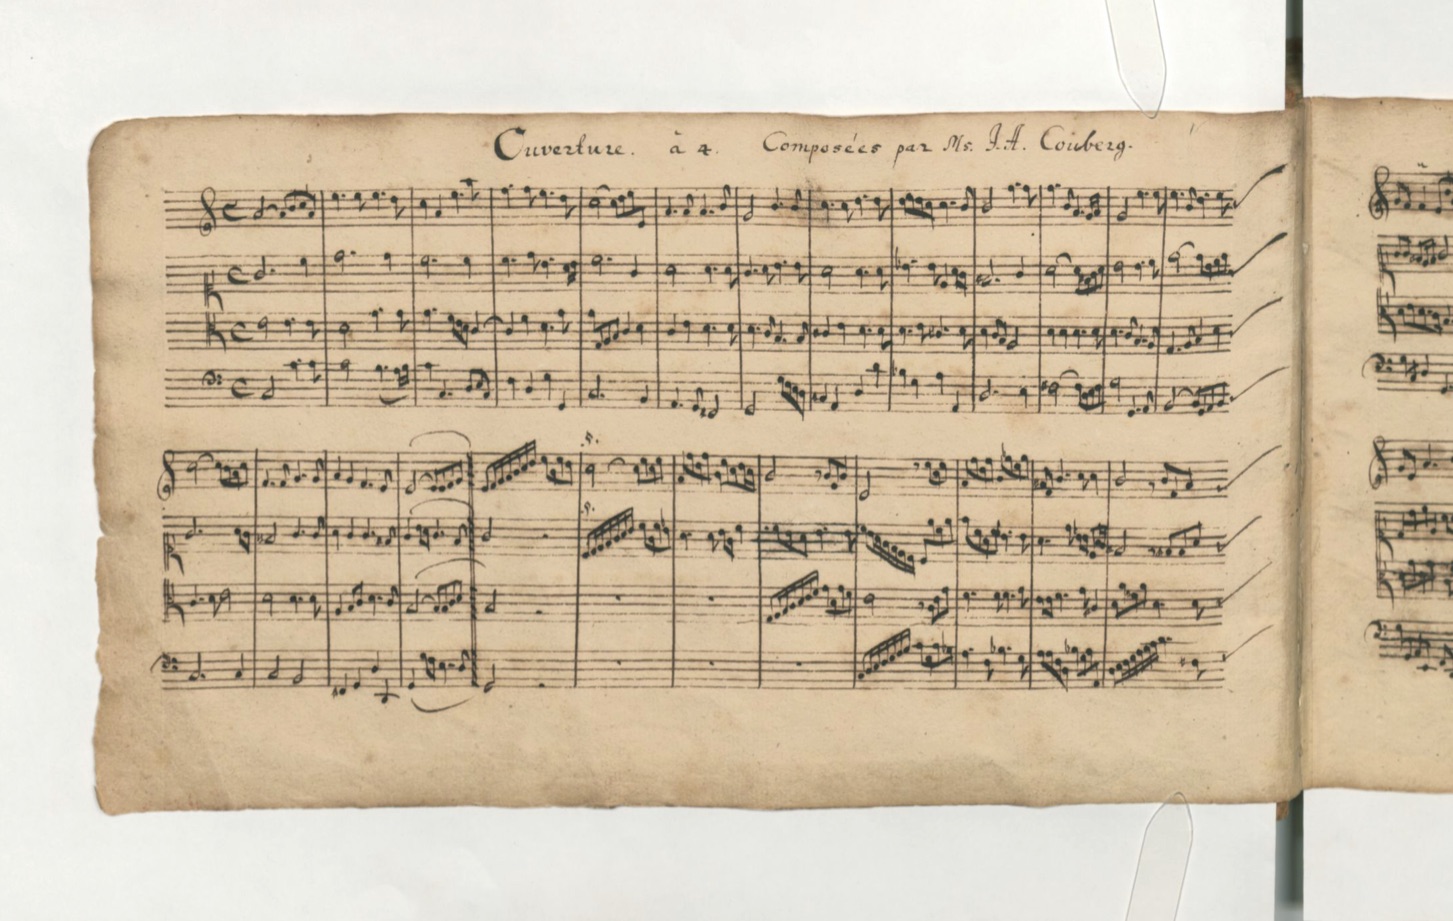 Ouverture. à 4. Composées par Ms. J. A. Coúberg.